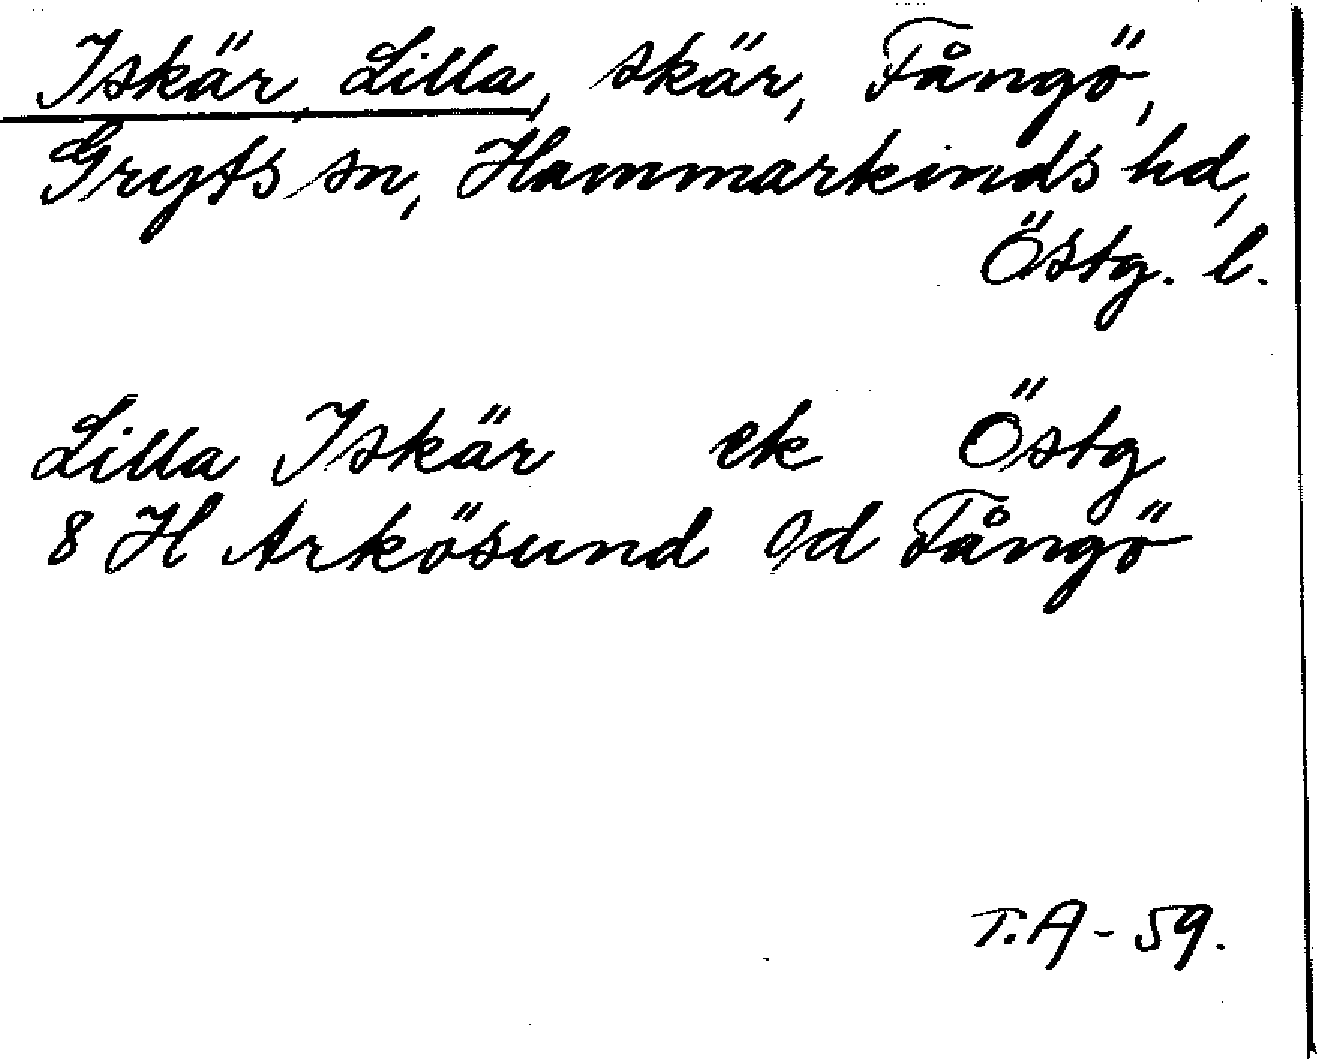 Iskär, Lilla, skär, Fångö,
Gryts sn, Hammarkinds hd,
Östg. l.
Lilla Iskär ek Östg
8 H Arkösund Sd Fångö
T.A - 59.